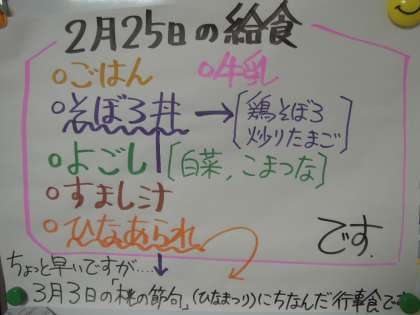 2月25日の給食
○ごはん ○牛乳
○そぼろ丼→[鶏そぼろ
炒りたまご]
○よごし[白菜、こまつな]
○すまし汁
○ひなあられ
です.
ちょっと早いですが....
3月3日の「桃の節句」(ひなまつり)にちなんだ行事食です